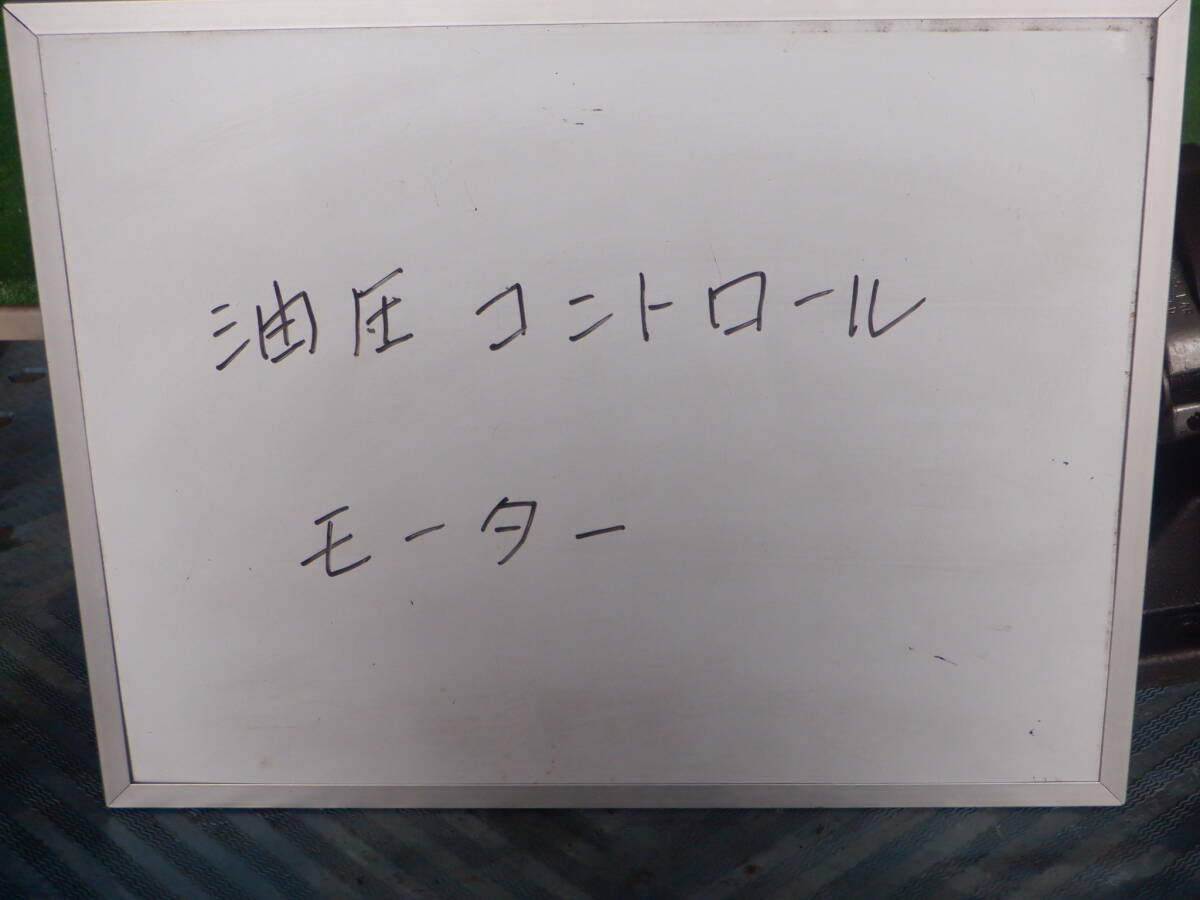 油圧 コントロール
モーター